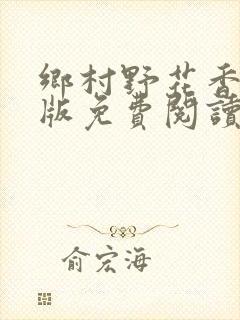 鄉村野花香
版免費閱讀
俞宏海